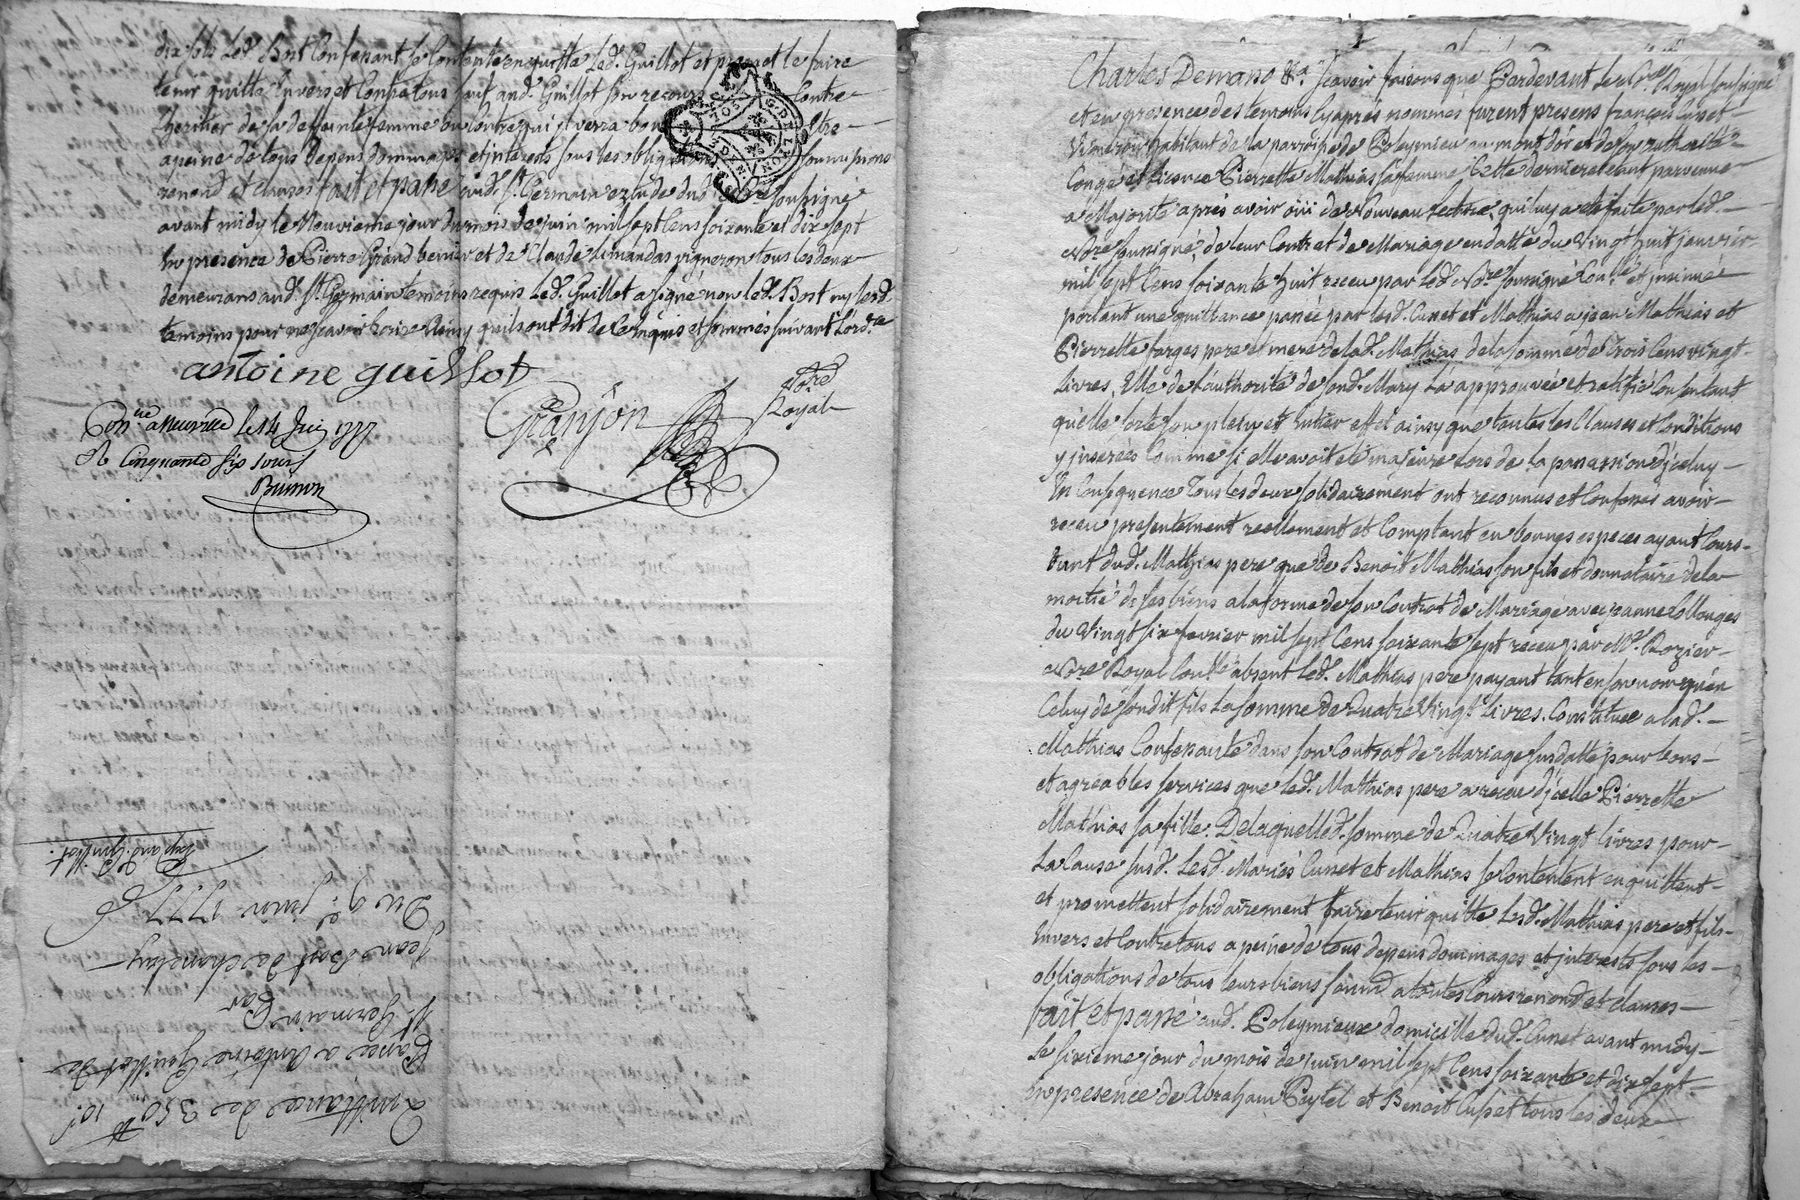 dix sols led. Bost Confessant se Contente en quitte led. Guillot et promet le faire
tenir quitte Envers et Contre tous sauf aud. Guillot son recours Contre
Lheritier de sa defeinte femme ou Contre qui il verra bon etre
apeine de tous depens dommages et interests sous les obligations soumissions
renond. et clauses fait et passé aud. St. Germain etude dud. Nore soussigné
avant midy le Neuvieme jour du mois de juin mil sept Cens soixante et dix sept
En presence de Pierre Grand bernier et de Claude Limandas vigneron tous les deux
demeurans aud. St. Germain temoins requis led. Guillot a signé non led. Bost ny lesd.
temoins pour ne scavoir Ecrire Ainsy quils ont dit de ce enquis et sommés suivant Lord.ce
antoine guillot
Granjon Nore Royal
Con.lé a Neuville le 14 Juin 1777
R Cinquante six sous
Brunon
Quittance de 350 lt 10 s.
Passée a Antoine Guillot de
St. Germain Par
Jean Bost de Chancelay
Du 9e. juin 1777
Exp aud. Guillot.
Charles Demano &a. Scavoir faisons que Pardevant le Con.er Royal soussigné
et en presence des temoins Cy aprés nommés furent presens françois Cunet
Vigneron habitant de la parroisse de Poleymieu au mont d'or et de son authorité
Congé et Licence Pierrette Mathias sa femme Cette derniere etant parvenue
a Majorité aprés avoir oüi de Nouveau Lecture, qui luy a eté faite par led.
Nore soussigné, de leur Contrat de Mariage en datte du Vingt huit janvier
mil sept Cens soixante huit receu par led. Nore soussigné Conllé et insinué
portant une quittance passée par lesd. Cunet et Mathias a jean Mathias et
Pierrette farges pere et mere de lad. Mathias de la somme de Trois Cens vingt
livres, Elle de l'authorité de sond. Mary L'a approuvée et ratifié Consentant
quelle sorte son plein et Entier effet ainsy que toutes les Clauses et Conditions
y inserées Comme si elle avoit eté majeure Lors de la passassion d'jcelluy
En Consequence Tous les deux solidairement ont reconnus et Confessé avoir
receu presentement reellement et Comptant en bonnes especes ayant Cours
tant dud. Mathias pere que de Benoit Mathias son fils et donnataire de la
moitié de ses biens a la forme de son Contrat de Mariage avec janne Collonges
du Vingt six fevrier mil sept Cens soixante sept receu par Me. Rozier
Nore Royal Conllé absent led. Mathias pere payant tant en son nom qu'en
Celuy de sondit fils La somme de Quatre Vingt Livres. Constituée a lad.
Mathias Confessante dans son Contrat de Mariage susdatté pour bons
et agreables services que led. Mathias pere a receu d'jcelle Pierrette
Mathias sa fille. De laquelled. somme de Quatre Vingt livres pour
La Cause susd. Lesd. Mariés Cunet et Mathias se Contentent en quittent
et promettent solidairement faire tenir quitte Lesd. Mathias pere et fils
Envers et Contre tous a peine de tous depens dommages et jnterests sous les
obligations de tous leurs biens soumis a toutes Cours renond. et clauses
fait et passé aud. Poleymieux domicille dud. Cunet avant midy
Le sixieme jour du mois de juin mil sept Cens soixante et dix sept
En presence de Abraham Peytel et Benoit Cupet tous les deux